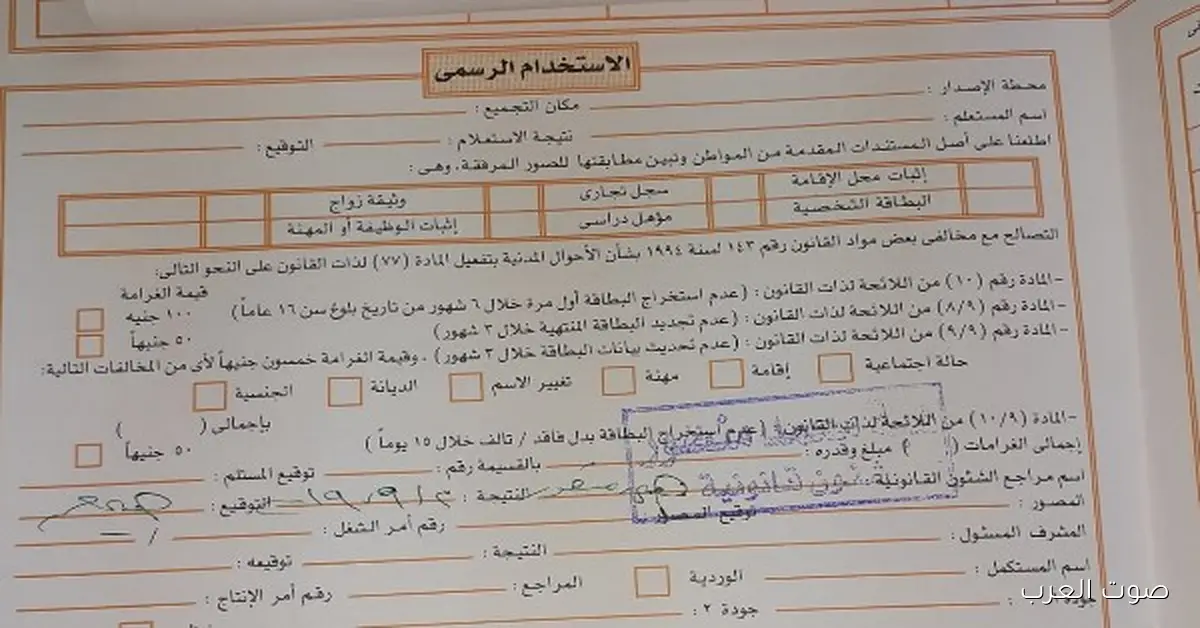 الاستخدام الرسمى
محطة الإصدار : مكان التجميع :
اسم المستعلم : نتيجة الاستعلام : التوقيع :
اطلعنا على أصل المستندات المقدمة من المواطن وتبين مطابقتها للصور المرفقة، وهى :
إثبات محل الإقامة سجل تجارى وثيقة زواج
البطاقة الشخصية مؤهل دراسى إثبات الوظيفة أو المهنة
التصالح مع مخالفى بعض مواد القانون رقم ١٤٣ لسنة ١٩٩٤ بشأن الأحوال المدنية بتفعيل المادة (٧٧) لذات القانون على النحو التالى:
قيمة الغرامة
-المادة رقم (١٠) من اللائحة لذات القانون : (عدم استخراج البطاقة أول مرة خلال ٦ شهور من تاريخ بلوغ سن ١٦ عاماً) ١٠٠ جنيه
-المادة رقم (٨/٩) من اللائحة لذات القانون : (عدم تجديد البطاقة المنتهية خلال ٣ شهور) ٥٠ جنيهاً
-المادة رقم (٩/٩) من اللائحة لذات القانون : (عدم تحديث بيانات البطاقة خلال ٣ شهور) . وقيمة الغرامة خمسون جنيهاً لأى من المخالفات التالية:
حالة اجتماعية إقامة مهنة تغيير الاسم الديانة الجنسية
بإجمالى ( )
-المادة (١٠/٩) من اللائحة لذات القانون : (عدم استخراج البطاقة بدل فاقد / تالف خلال ١٥ يوماً) ٥٠ جنيهاً
إجمالى الغرامات ( ) مبلغ وقدره : بالقسيمة رقم : توقيع المستلم :
اسم مراجع الشئون القانونية : النتيجة : التوقيع :
شئون قانونية
المصور : توقيع المصور : رقم أمر الشغل :
المشرف المسئول : النتيجة : توقيعه :
اسم المستكمل : الوردية المراجع : رقم أمر الإنتاج :
جودة ٢ :
صوت العرب